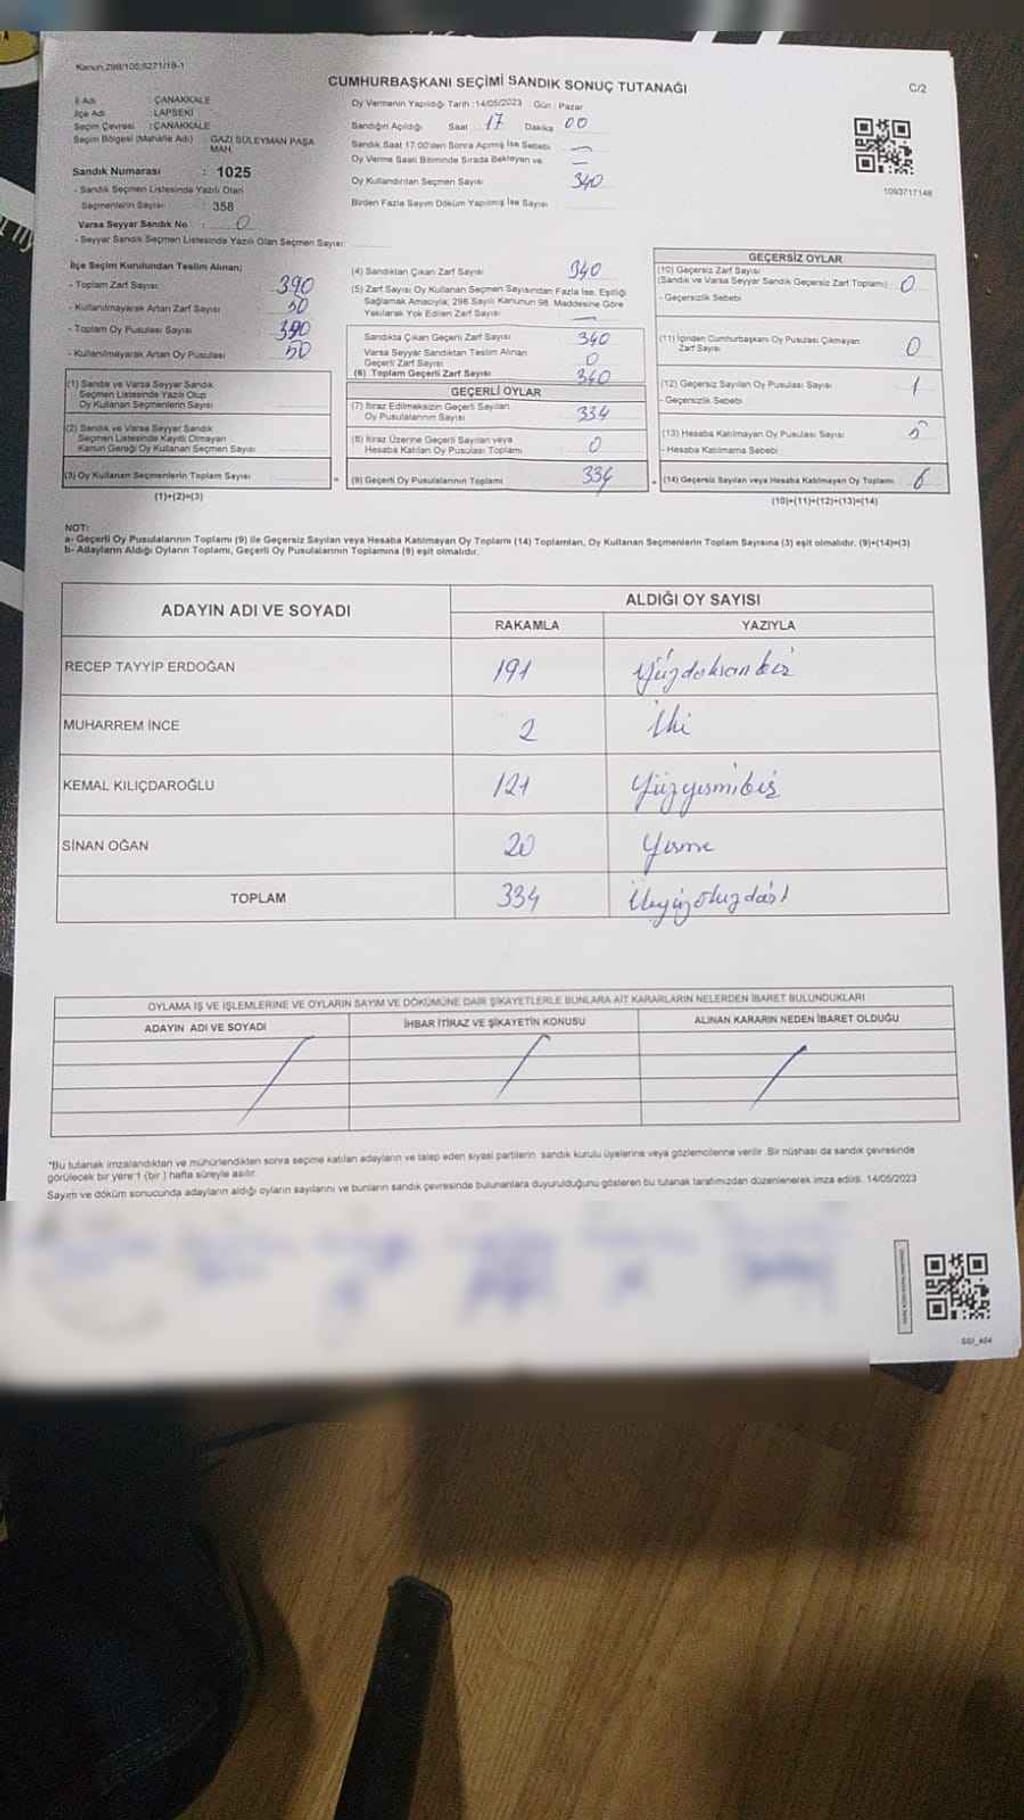 Kanun:298/105;6271/18-1
CUMHURBAŞKANI SEÇİMİ SANDIK SONUÇ TUTANAĞI
C/2
İl Adı : ÇANAKKALE
İlçe Adı : LAPSEKİ
Seçim Çevresi : ÇANAKKALE
Seçim Bölgesi (Mahalle Adı) : GAZİ SÜLEYMAN PAŞA MAH.
Sandık Numarası : 1025
- Sandık Seçmen Listesinde Yazılı Olan
Seçmenlerin Sayısı : 358
Varsa Seyyar Sandık No : 0
- Seyyar Sandık Seçmen Listesinde Yazılı Olan Seçmen Sayısı:
Oy Vermenin Yapıldığı Tarih :14/05/2023 Gün : Pazar
Sandığın Açıldığı Saat 17 Dakika 00
Sandık Saat 17:00'den Sonra Açılmış İse Sebebi —
Oy Verme Saati Bitiminde Sırada Bekleyen ve —
Oy Kullandırılan Seçmen Sayısı 340
Birden Fazla Sayım Döküm Yapılmış İse Sayısı
1093717148
İlçe Seçim Kurulundan Teslim Alınan;
- Toplam Zarf Sayısı 390
- Kullanılmayarak Artan Zarf Sayısı 50
- Toplam Oy Pusulası Sayısı 390
- Kullanılmayarak Artan Oy Pusulası 50
(1) Sandık ve Varsa Seyyar Sandık
Seçmen Listesinde Yazılı Olup
Oy Kullanan Seçmenlerin Sayısı
(2) Sandık ve Varsa Seyyar Sandık
Seçmen Listesinde Kayıtlı Olmayan
Kanun Gereği Oy Kullanan Seçmen Sayısı
(3) Oy Kullanan Seçmenlerin Toplam Sayısı
(1)+(2)=(3)
(4) Sandıktan Çıkan Zarf Sayısı 340
(5) Zarf Sayısı Oy Kullanan Seçmen Sayısından Fazla İse, Eşitliği
Sağlamak Amacıyla; 298 Sayılı Kanunun 98. Maddesine Göre
Yakılarak Yok Edilen Zarf Sayısı —
Sandıkta Çıkan Geçerli Zarf Sayısı 340
Varsa Seyyar Sandıktan Teslim Alınan
Geçerli Zarf Sayısı 0
(6) Toplam Geçerli Zarf Sayısı 340
GEÇERLİ OYLAR
(7) İtiraz Edilmeksizin Geçerli Sayılan
Oy Pusulalarının Sayısı 334
(8) İtiraz Üzerine Geçerli Sayılan veya
Hesaba Katılan Oy Pusulası Toplamı 0
= (9) Geçerli Oy Pusulalarının Toplamı 334
GEÇERSİZ OYLAR
(10) Geçersiz Zarf Sayısı
(Sandık ve Varsa Seyyar Sandık Geçersiz Zarf Toplamı) 0
- Geçersizlik Sebebi
(11) İçinden Cumhurbaşkanı Oy Pusulası Çıkmayan
Zarf Sayısı 0
(12) Geçersiz Sayılan Oy Pusulası Sayısı 1
- Geçersizlik Sebebi
(13) Hesaba Katılmayan Oy Pusulası Sayısı 5
- Hesaba Katılmama Sebebi
+ (14) Geçersiz Sayılan veya Hesaba Katılmayan Oy Toplamı 6
(10)+(11)+(12)+(13)=(14)
NOT:
a- Geçerli Oy Pusulalarının Toplamı (9) ile Geçersiz Sayılan veya Hesaba Katılmayan Oy Toplamı (14) Toplamları, Oy Kullanan Seçmenlerin Toplam Sayısına (3) eşit olmalıdır. (9)+(14)=(3)
b- Adayların Aldığı Oyların Toplamı, Geçerli Oy Pusulalarının Toplamına (9) eşit olmalıdır.
ADAYIN ADI VE SOYADI ALDIĞI OY SAYISI
RAKAMLA YAZIYLA
RECEP TAYYİP ERDOĞAN 191 Yüzdoksanbir
MUHARREM İNCE 2 İki
KEMAL KILIÇDAROĞLU 121 Yüzyirmibir
SİNAN OĞAN 20 Yirmi
TOPLAM 334 Üçyüzotuzdört
OYLAMA İŞ VE İŞLEMLERİNE VE OYLARIN SAYIM VE DÖKÜMÜNE DAİR ŞİKAYETLERLE BUNLARA AİT KARARLARIN NELERDEN İBARET BULUNDUKLARI
ADAYIN ADI VE SOYADI İHBAR İTİRAZ VE ŞİKAYETİN KONUSU ALINAN KARARIN NEDEN İBARET OLDUĞU
*Bu tutanak imzalandıktan ve mühürlendikten sonra seçime katılan adayların ve talep eden siyasi partilerin sandık kurulu üyelerine veya gözlemcilerine verilir. Bir nüshası da sandık çevresinde
görülecek bir yere 1 (bir) hafta süreyle asılır.
Sayım ve döküm sonucunda adayların aldığı oyların sayılarını ve bunların sandık çevresinde bulunanlara duyurulduğunu gösteren bu tutanak tarafımızdan düzenlenerek imza edildi. 14/05/2023